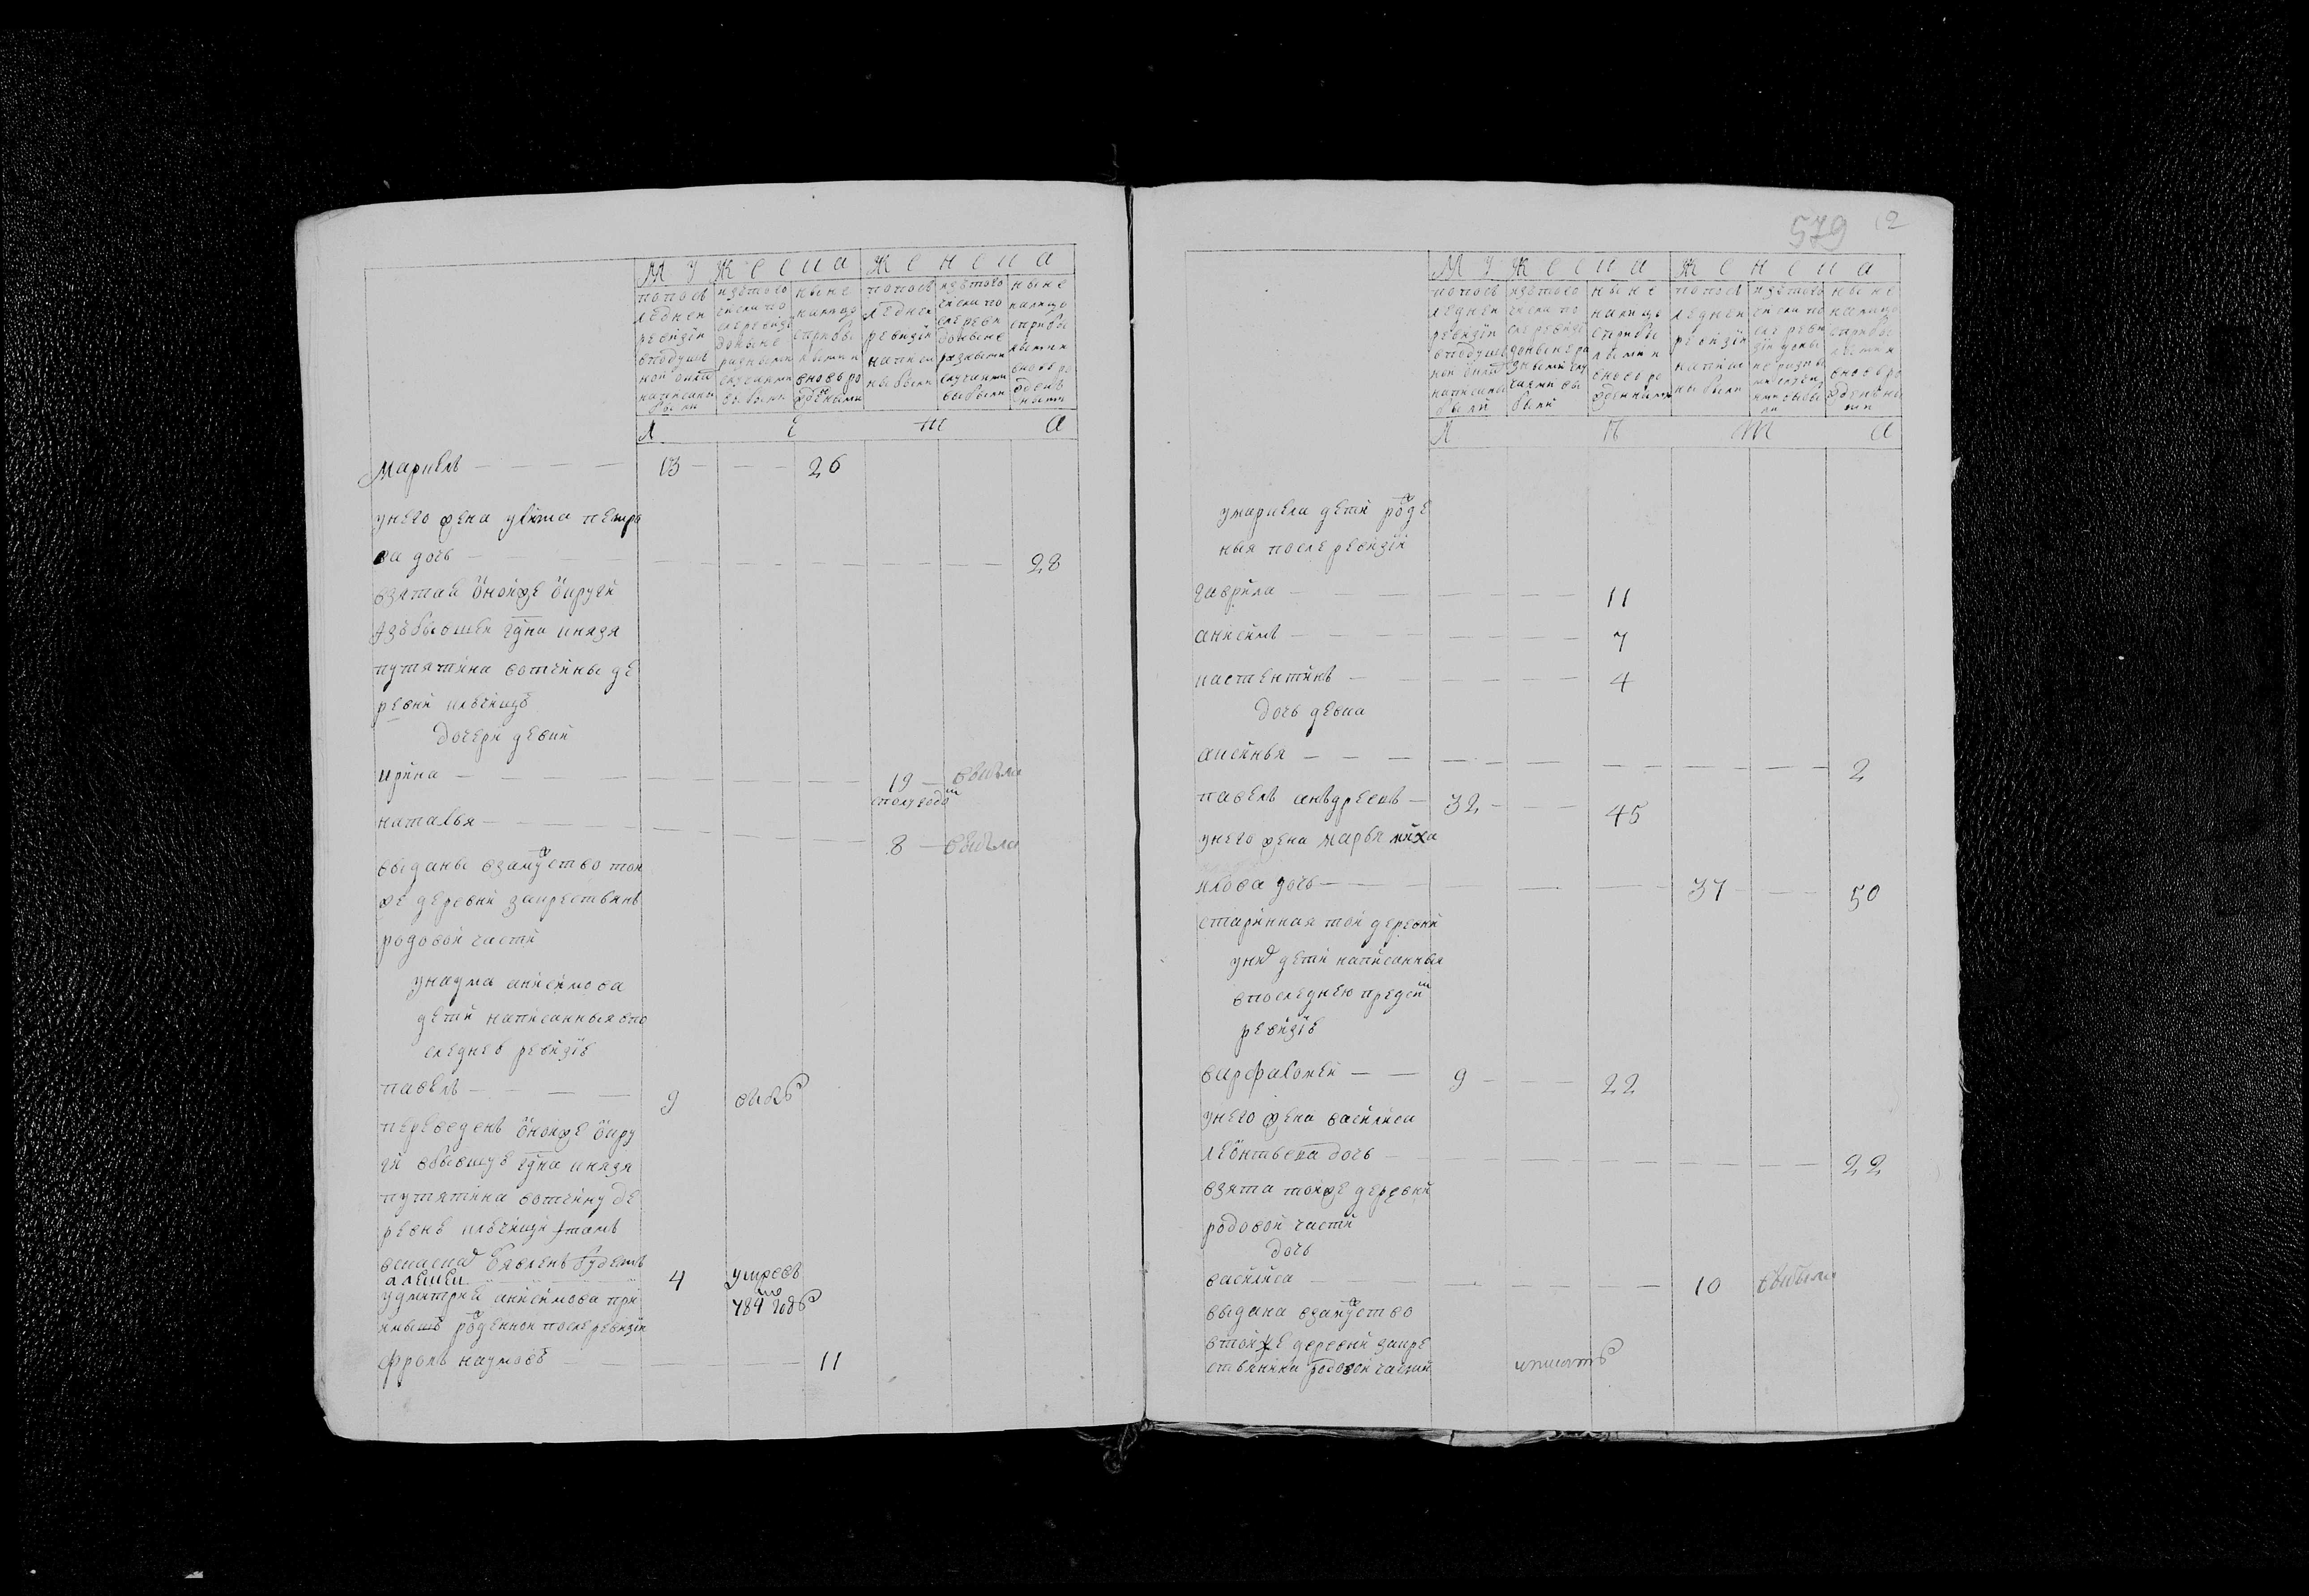 Мужеска Женска
попосл ѣднеи ревизіи вподушной окла написаны были
изтого числа по слеревизи доныне разными случаями выбыли
ныне налицо сприбылыми и вновь рождеными
попосл ѣднеи ревизіи написаны были
изтого числа по слеревизи доныне разными случаями выбыли
ныне налицо сприбылыми и вновь рожденными
Л Е т а
маркелъ 13 26
унего жена улита петро
ва дочь 28
взятая оноиже округи
изъбывшеи гдна князя
путятина вотчины де
ревни
дочери девки
ирина 19 выбыла
сполугодо
наталья 8 выбыла
выданы взамужство тои
же деревни закрестьянъ
родовои части
унаума анисимова
дети написанныя впо
следнеѣ ревизіѣ
павелъ 9 выбылъ
переведенъ оноиже окру
ги вбывшую гдна князя
путятина вотчину де
ревнѣ итамъ
объявленъ будетъ
алексеи 4 умре въ
784 годѣ
удмитрия анисимова при
емышъ рожденнои послеревизіи
фролъ наумовъ 11
579
12
Мужеска Женска
попосл ѣднеи ревизіи вподушной окла написаны были
изтого числа по слеревизи доныне разными случаями выбыли
ныне налицо сприбылыми и вновь рожденными
попосл ѣднеи ревизіи написаны были
изтого числа по слереви зіи доныне разными случаями выбыли
ныне налицо сприбылыми и вновь рожденными
Л Ѣ Т а
умаркела дети рожде
ныя после ревизіи
гаврила 11
анисимъ 7
костентинъ 4
дочь девка
аксинья 2
павелъ андреевъ 32 45
унего жена марья миха
илова дочь 37 50
старинная тои деревни
уних дети написанныя
впоследнею предсим
ревизіѣ
варфаломеи 9 22
унего жена василиса
леонтьева дочь 22
взята тоиже деревни
родовои части
дочь
василиса 10 выбыла
выдана взамужство
втоиже деревни закре
стьянина родовои части